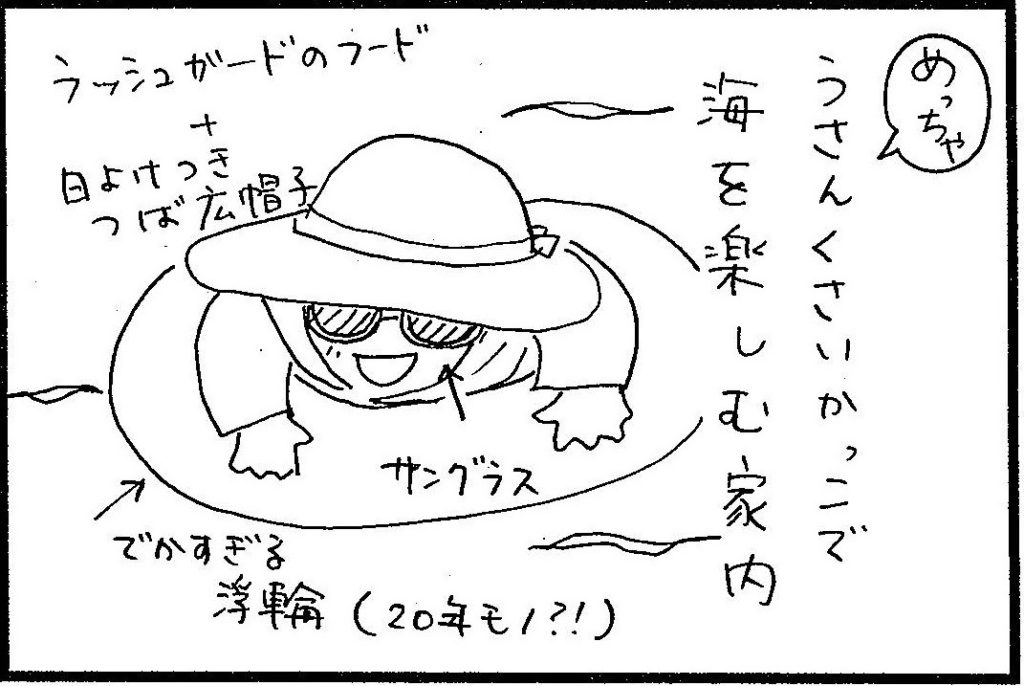 めっちゃ
うさんくさいかっこで
海を楽しむ家内
ラッシュガードのフード
+
日よけつき
つば広帽子
サングラス
でかすぎる
浮輪(20年モノ?!)